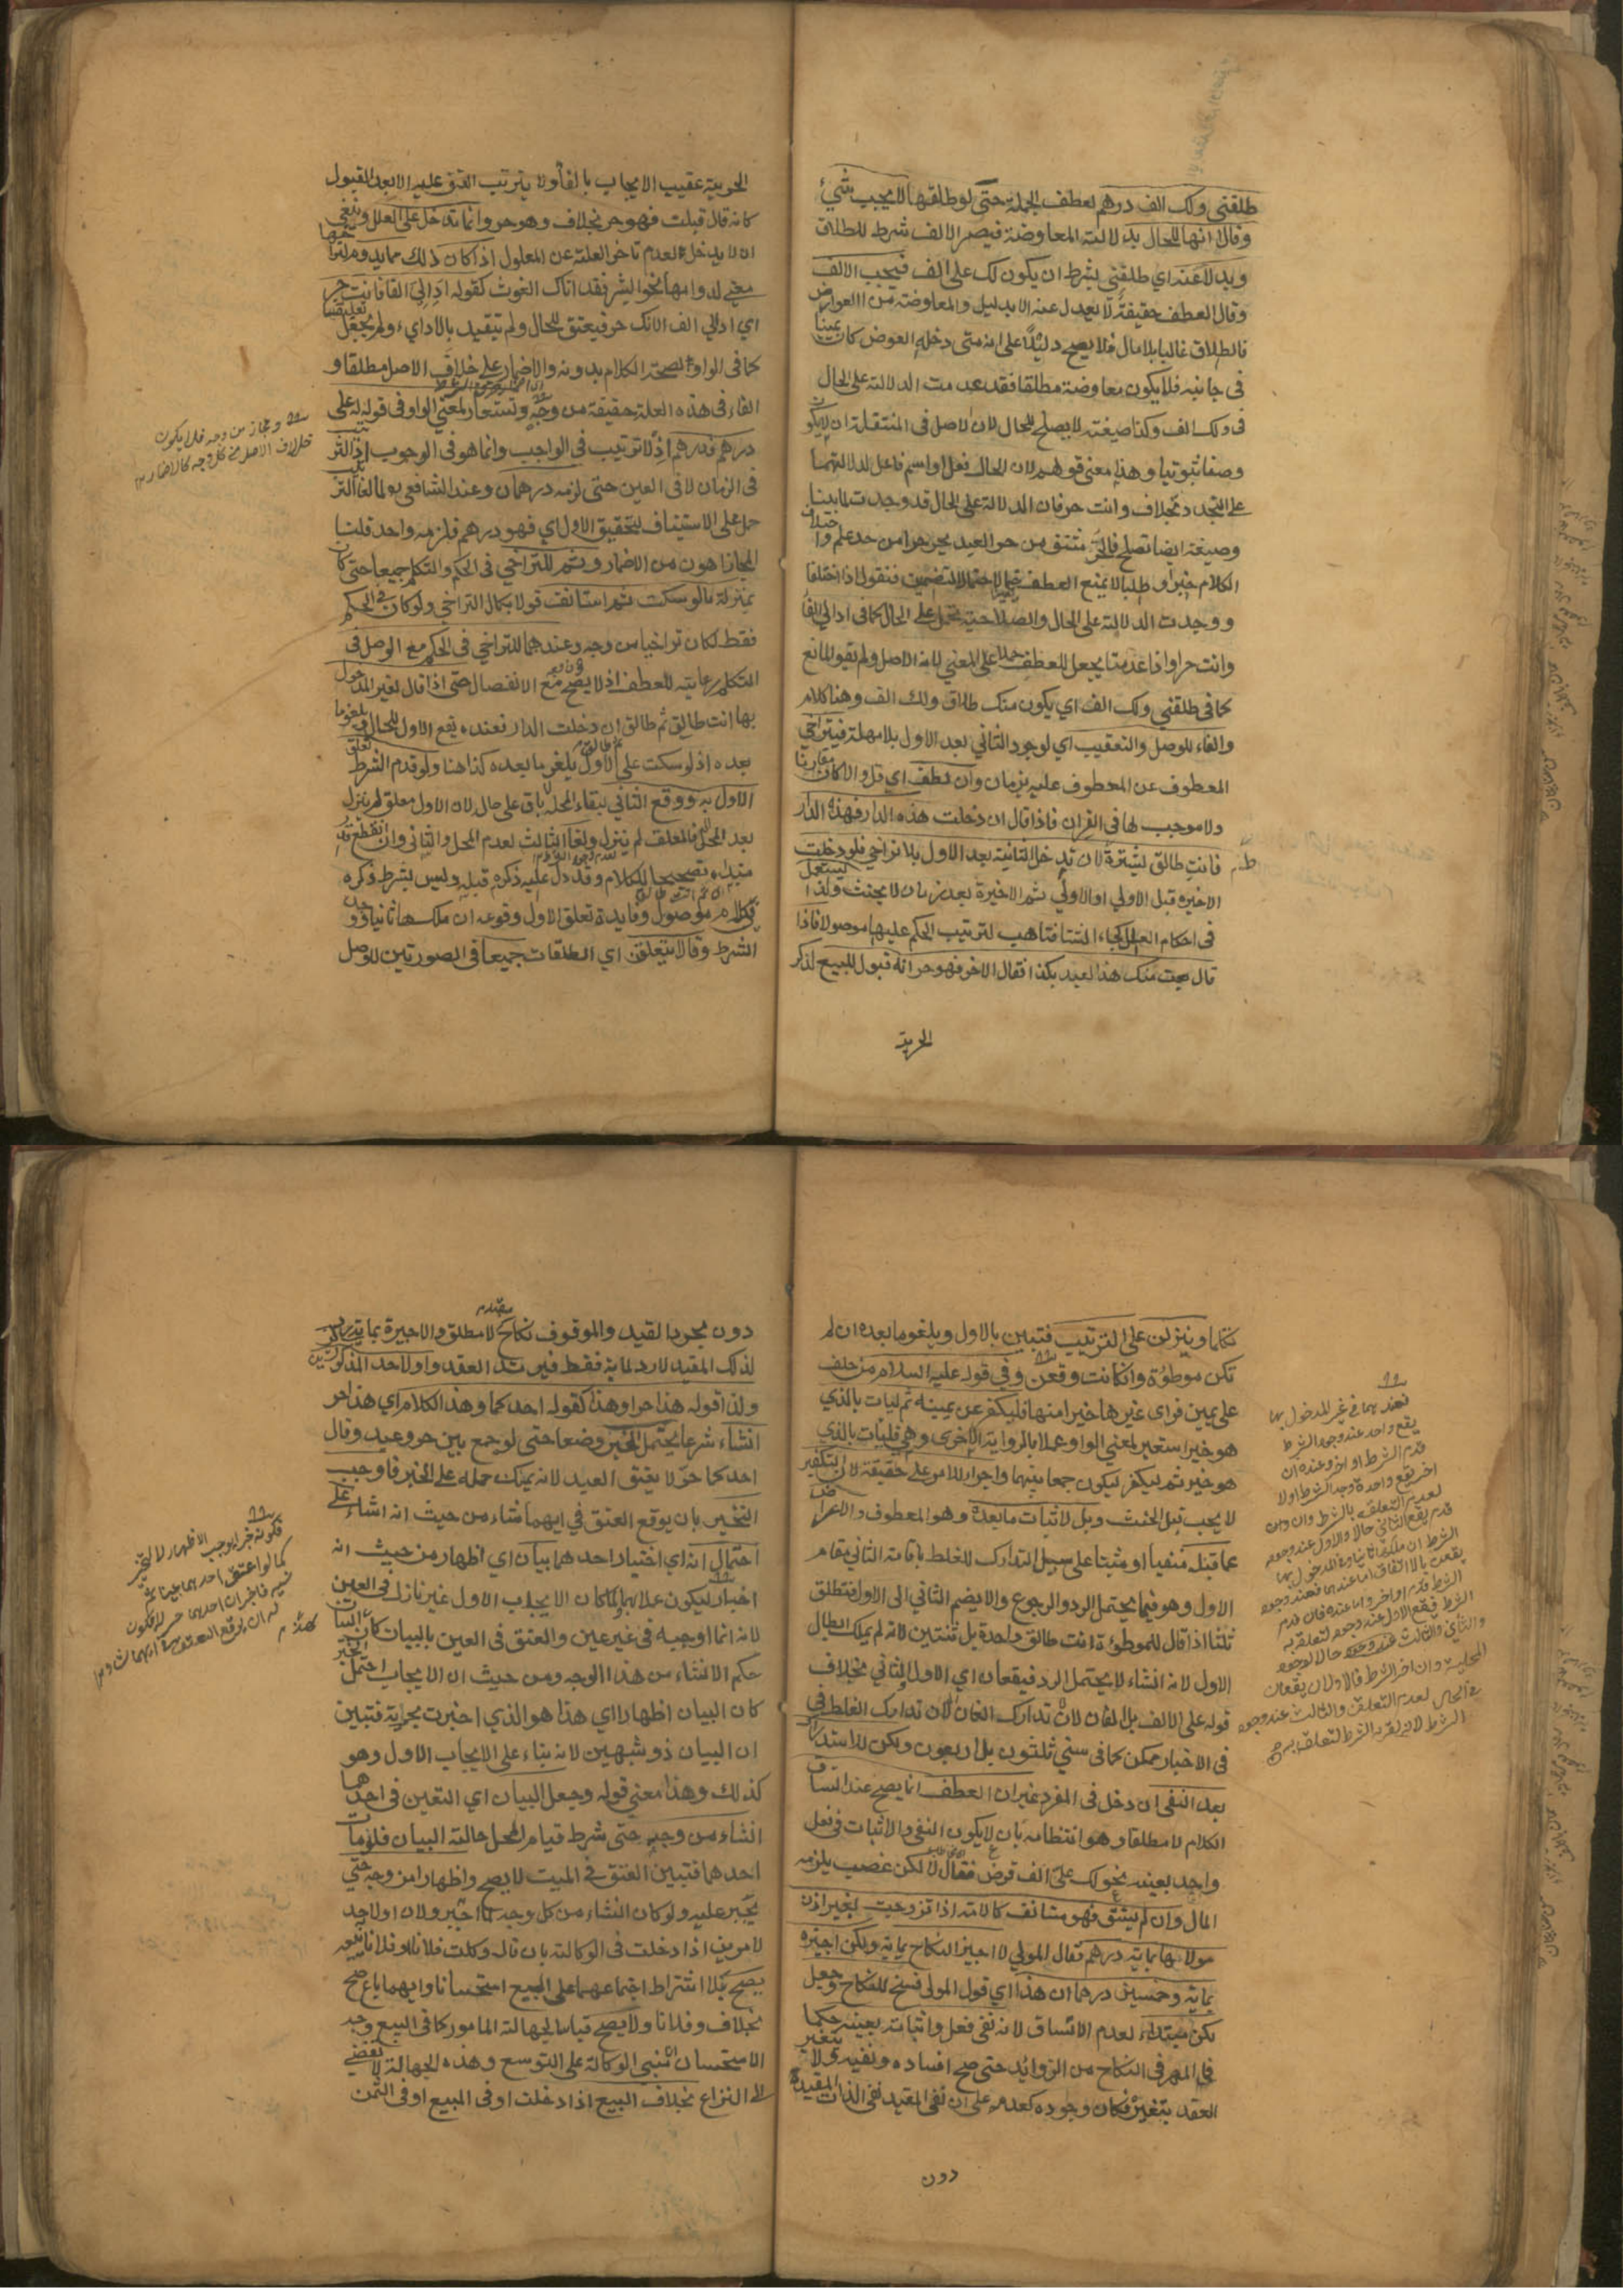 طلقني ولك الف درهم لعطف الجملة حتى لو طلقها لا يجب شيء
وقالا انها للحال بدلالة المعاوضة فيصير الالف شرط للطلاق
وبدلا عنه اي طلقني بشرط ان يكون لك على الف فيجب الالف
وقال العطف حقيقة لا يعدل عنه الا بدليل والمعاوضة من العوارض
فالطلاق غالبا بلا مال فلا يصح دليلا على انه متى دخله العوض كان يمينا
في جانبه فلا يكون معاوضة مطلقا فقد عدمت الدلالة على الحال
في ولك الف وكذا صيغته لا يصلح للحال لان لاصل في المنتقلة ان لا يكون
وصفا ثبوتيا وهذا معنى قولهم لان الحال فعل او اسم فاعل لدلالتهما
على التجدد بخلاف وانت حر فان الدلالة على الحال قد وجدت لما بينا
وصيغته ايضا تصلح فالحر مشتق من حر العبد يحر حرا من حد علم واختلاف
الكلام خبرا و طلبا لا يمنع العطف فنقول اذا اختلفا
ووجدت الدلالة على الحال والصلاحية يحمل على الحال كما في اد الي الفا
وانت حر او اذا عدمتا يجعل للعطف حملا على المعنى لانه الاصل ولم يقو المانع
كما في طلقني ولك الف اي يكون منك طلاق ولك الف وهنا كلام
والفاء للوصل والتعقيب اي لوجود الثاني بعد الاول بلا مهلة فيتراخي
المعطوف عن المعطوف عليه بزمان وان لطف اي قل والا كان مقارنا
ولا موجب لها في القران فاذا قال ان دخلت هذه الدار فهذه الدار
فانت طالق يشترط لان تدخل الثانية بعد الاول بلا تراخي فلو دخلت
الاخيرة قبل الاولي او الاولي ثم الاخيرة بعد زمان لا يحنث ولذا يستعمل
في احكام العلل كجاء الشتا فتاهب لترتيب الحكم عليها موصولا فاذا
قال بعت منك هذا العبد بكذا فقال الاخر فهو حر انه قبول للبيع لذكر
الحرية
الحرية عقيب الايجاب بالفا ولا يترتب العتق عليه الا بعد القبول
كانه قال قبلت فهو حر بخلاف وهو حر وانما تدخل على العلل وينبغي
ان لا يدخل لعدم تاخر العلة عن المعلول اذا كان ذلك مما يدوم لتراخيها
معنى لدوامها نحو ابشر فقد اتاك الغوث كقوله اد الي الفا فانت حر
اي اد الي الف لانك حر فيعتق للحال ولم يتقيد بالاداء ولم يجعل تعليقا
كما في الواو لصحة الكلام بدونه والاضمار على خلاف الاصل مطلقا و
الفاء في هذه العلة حقيقة من وجه وتستعار لمعنى الواو في قوله له على
درهم فدرهم اذ لا ترتيب في الواجب وانما هو في الوجوب اذ الترتيب
في الزمان لا في العين حتى لزمه درهمان وعند الشافعي لما لغا الترتيب
حمل على الاستيناف لتحقيق الاول اي فهو درهم فلزمه واحد قلنا
المجاز اهون من الاضمار وثم للتراخي في الحكم والتكلم جميعا حتى كان
بمنزلة ما لو سكت ثم استانف قولا بكمال التراخي ولو كان في الحكم
فقط لكان تراخيا من وجه وعندهما للتراخي في الحكم مع الوصل في
التكلم رعاية للعطف اذ لا يصح مع الانفصال حتى اذا قال لغير المدخول
بها انت طالق ثم طالق ان دخلت الدار فعنده يقع الاول للحال ويلغو ما
بعده اذ لو سكت على الاول يلغو ما بعده كذا هنا ولو قدم الشرط تعلق
الاول به ووقع الثاني لبقاء المحل باق على حال لان الاول معلق لم ينزل
بعد المحل فالمعلق لم ينزل ولغا الثالث لعدم المحل والثاني وان انقطع
تصحيحا للكلام وقد دل عليه ذكره قبله وليس بشرط ذكره
موصول وفايدة تعلق الاول وقوعه ان ملكها ثانيا ووجد
الشرط وقالا يتعلقن اي الطلقات جميعا في الصورتين للوصل
ومجاز من وجه فلا يكون
خلاف الاصل من كل وجه كالاضمار
تكلما وينزلن على الترتيب فتبين بالاول ويلغو ما بعده ان لم
تكن موطؤة وان كانت وقعن وفي قوله عليه السلام من حلف
على يمين فراى غيرها خيرا منها فليكفر عن يمينه ثم ليات بالذي
هو خير استعير لمعنى الواو عملا بالرواية الاخرى وهي فليات بالذي
هو خير ثم ليكفر ليكون جمعا بينهما واجراء للامر على حقيقة لان التكفير
لا يجب قبل الحنث وبل لاثبات ما بعده وهو المعطوف والاعراض
عما قبله منفيا او مثبتا على سبيل التدارك للغلط باقامة الثاني مقام
الاول وهو فيما يحتمل الرد والرجوع والا يضم الثاني الى الاول فتطلق
ثلثا اذا قال للموطؤة انت طالق واحدة بل ثنتين لانه لم يملك ابطال
الاول لانه انشاء لا يحتمل الرد فيقعان اي الاول والثاني بخلاف
قوله على الالف بل الفان لان تدارك الغلط في
في الاخبار ممكن كما في سني ثلثون بل اربعون ولكن للاستدراك
بعد النفي ان دخل في المفرد غير ان العطف انما يصح عند اتساق
الكلام لا مطلقا وهو انتظامه بان لا يكون النفي والاثبات في فعل
واحد بعينه نحو لك على الف قرض فقال لا لكن غصب يلزمه
المال وان لم يتسق فهو مستانف كالامة اذا تزوجت بغير اذن
مولاها بماية درهم فقال المولي لا اجيز النكاح بماية ولكن اجيزه
بماية وخمسين درهما ان هذا اي قول المولى فسخ للنكاح وجعل
لكن مبتداء لعدم الاتساق لانه نفي فعل واثباته بعينه حكما
في المهر في النكاح من الزوايد حتى صح افساده ونفيه ولا يتغير
العقد بتغيره فكان وجوده كعدمه على ان نفي المقيد نفي الذات المقيدة
دون
فعندهما في غير المدخول بها
يقع واحد عند وجود الشرط
قدم الشرط او اخر وعنده ان
اخر يقع واحدة وجد الشرط او لا
لعدم التعلق بالشرط وان
قدم يقع الثاني حالا والاول عند وجود
دون مجرد القيد والموقوف نكاح مقيد لا مطلق والاجيزة بماية يكون
لذلك المقيد لا رد لماية فقط فيرتد العقد واو لاحد المذكورين
ولذا قوله هذا حر او هذا كقوله احدكما وهذا الكلام اي هذا حر
انشاء شرعا يحتمل الخبر وضعا حتى لو جمع بين حر وعبد وقال
احدكما حر لا يعتق العبد لانه يمكن حمله على الخبر فاوجب
التخيير بان يوقع العتق في ايهما شاء من حيث انه انشاء على
احتمال انه اي اختيار احدهما بيان اي اظهار من حيث انه
اخبار ليكون عملا بهما ولما كان الايجاب الاول غير نازل في العين
لانه انما اوجبه في غير عين والعتق في العين بالبيان كان للبيان
حكم الانشاء من هذا الوجه ومن حيث ان الايجاب احتمل الخبر
كان البيان اظهارا اي هذا هو الذي اخبرت بحريته فتبين
ان البيان ذو شبهين لانه بناء على الايجاب الاول وهو
كذلك وهذا معنى قوله وجعل البيان اي التعين في احدهما
انشاء من وجه حتى شرط قيام المحل حالة البيان فلو مات
احدهما فتبين العتق في الميت لا يصح واظهارا من وجه حتى
يجبر عليه ولو كان انشاء من كل وجه لما اجبر ولان او لاحد
الامرين اذا دخلت في الوكالة بان قال وكلت فلانا او فلانا ببيعه
يصح بلا اشتراط اجتماعهما على البيع استحسانا وايهما باع صح
بخلاف وفلانا ولا يصح قياسا لجهالة المامور كما في البيع وجه
الاستحسان ان مبني الوكالة على التوسع وهذه الجهالة لا تفضي
الى النزاع بخلاف البيع اذا دخلت او في المبيع او في الثمن